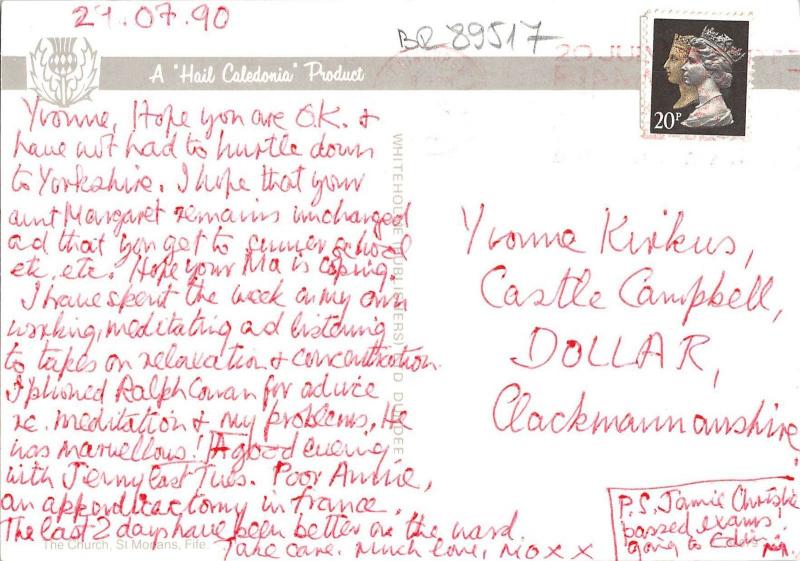 21.07.90
BR 89517
A "Hail Caledonia" Product
20 JULY
20P
Yvonne, Hope you are O.K. &
have not had to hurtle down
to Yorkshire. I hope that your
aunt Margaret remains unchanged
ad that you get to summer school
etc. etc. Hope your Ma is coping.
I have spent the week on my own
working, meditating ad listening
to tapes on relaxation & concentration.
I phoned Ralph Cowan for advice
re. meditation & my problems, He
was marvellous! A good evening
with Jenny last Tues. Poor Annie,
an appendicectomy in France.
The last 2 days have been better on the ward.
Take care. Much love, Mo x x
The Church, St Monans, Fife.
WHITEHOLME (PUBLISHERS) LTD DUNDEE
Yvonne Kirkus,
Castle Campbell,
DOLLAR,
Clackmannanshire
P.S. Jamie Christie
passed exams!
going to Edin